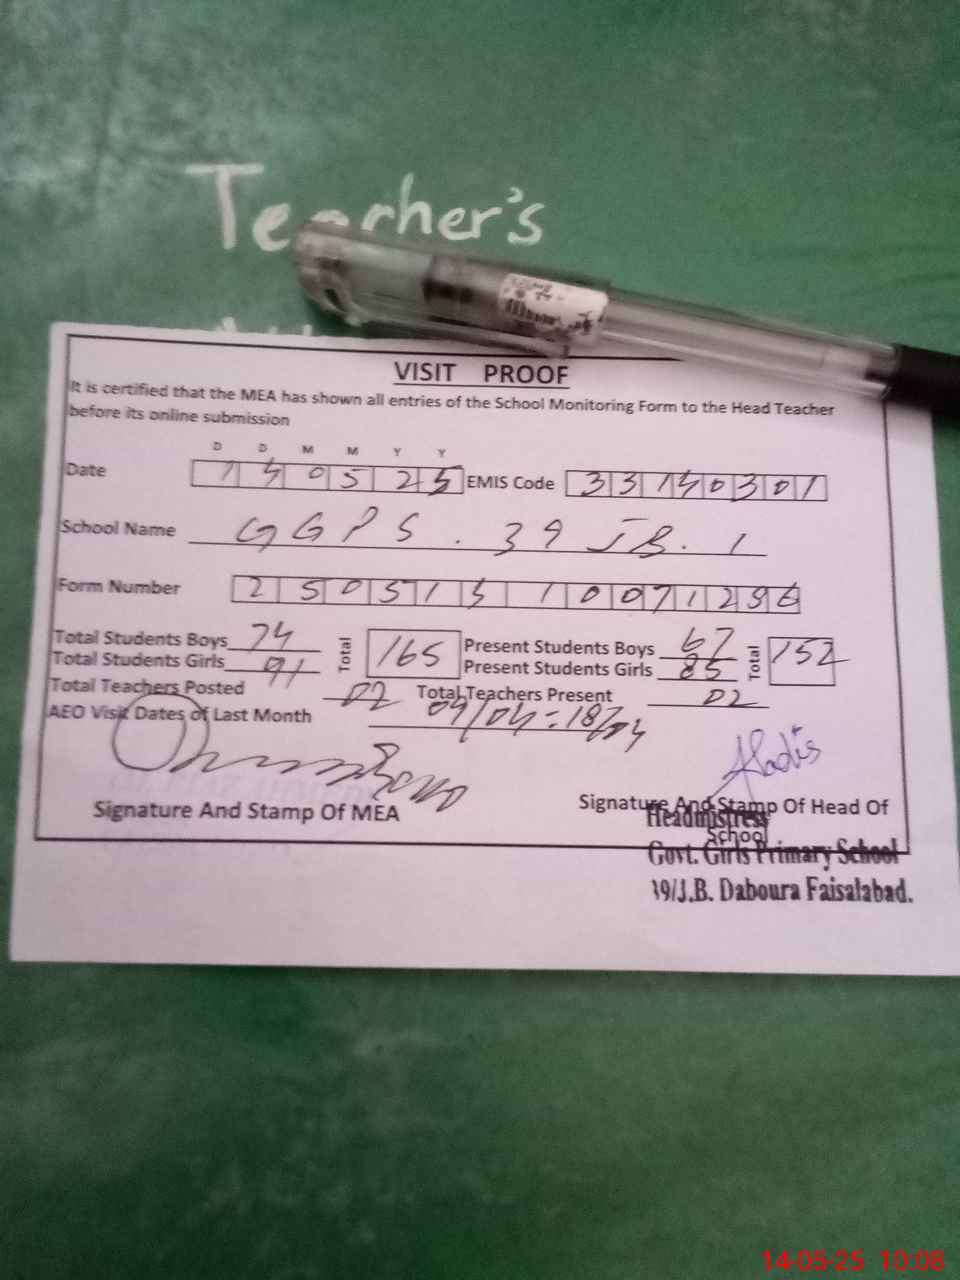 Teacher's
VISIT PROOF
It is certified that the MEA has shown all entries of the School Monitoring Form to the Head Teacher
before its online submission
D D M M Y Y
Date 14 05 25 EMIS Code 33140301
School Name GGPS. 39 JB. 1
Form Number
Total Students Boys 74 Total 165 Present Students Boys 67 Total 152
Total Students Girls 91 Present Students Girls 85
Total Teachers Posted 02 Total Teachers Present 02
AEO Visit Dates of Last Month 04/04 = 18/04
Signature And Stamp Of MEA
Signature And Stamp Of Head Of
School
Headmistress
Govt. Girls Primary School
39/J.B. Daboura Faisalabad.
14-05-25 10:08